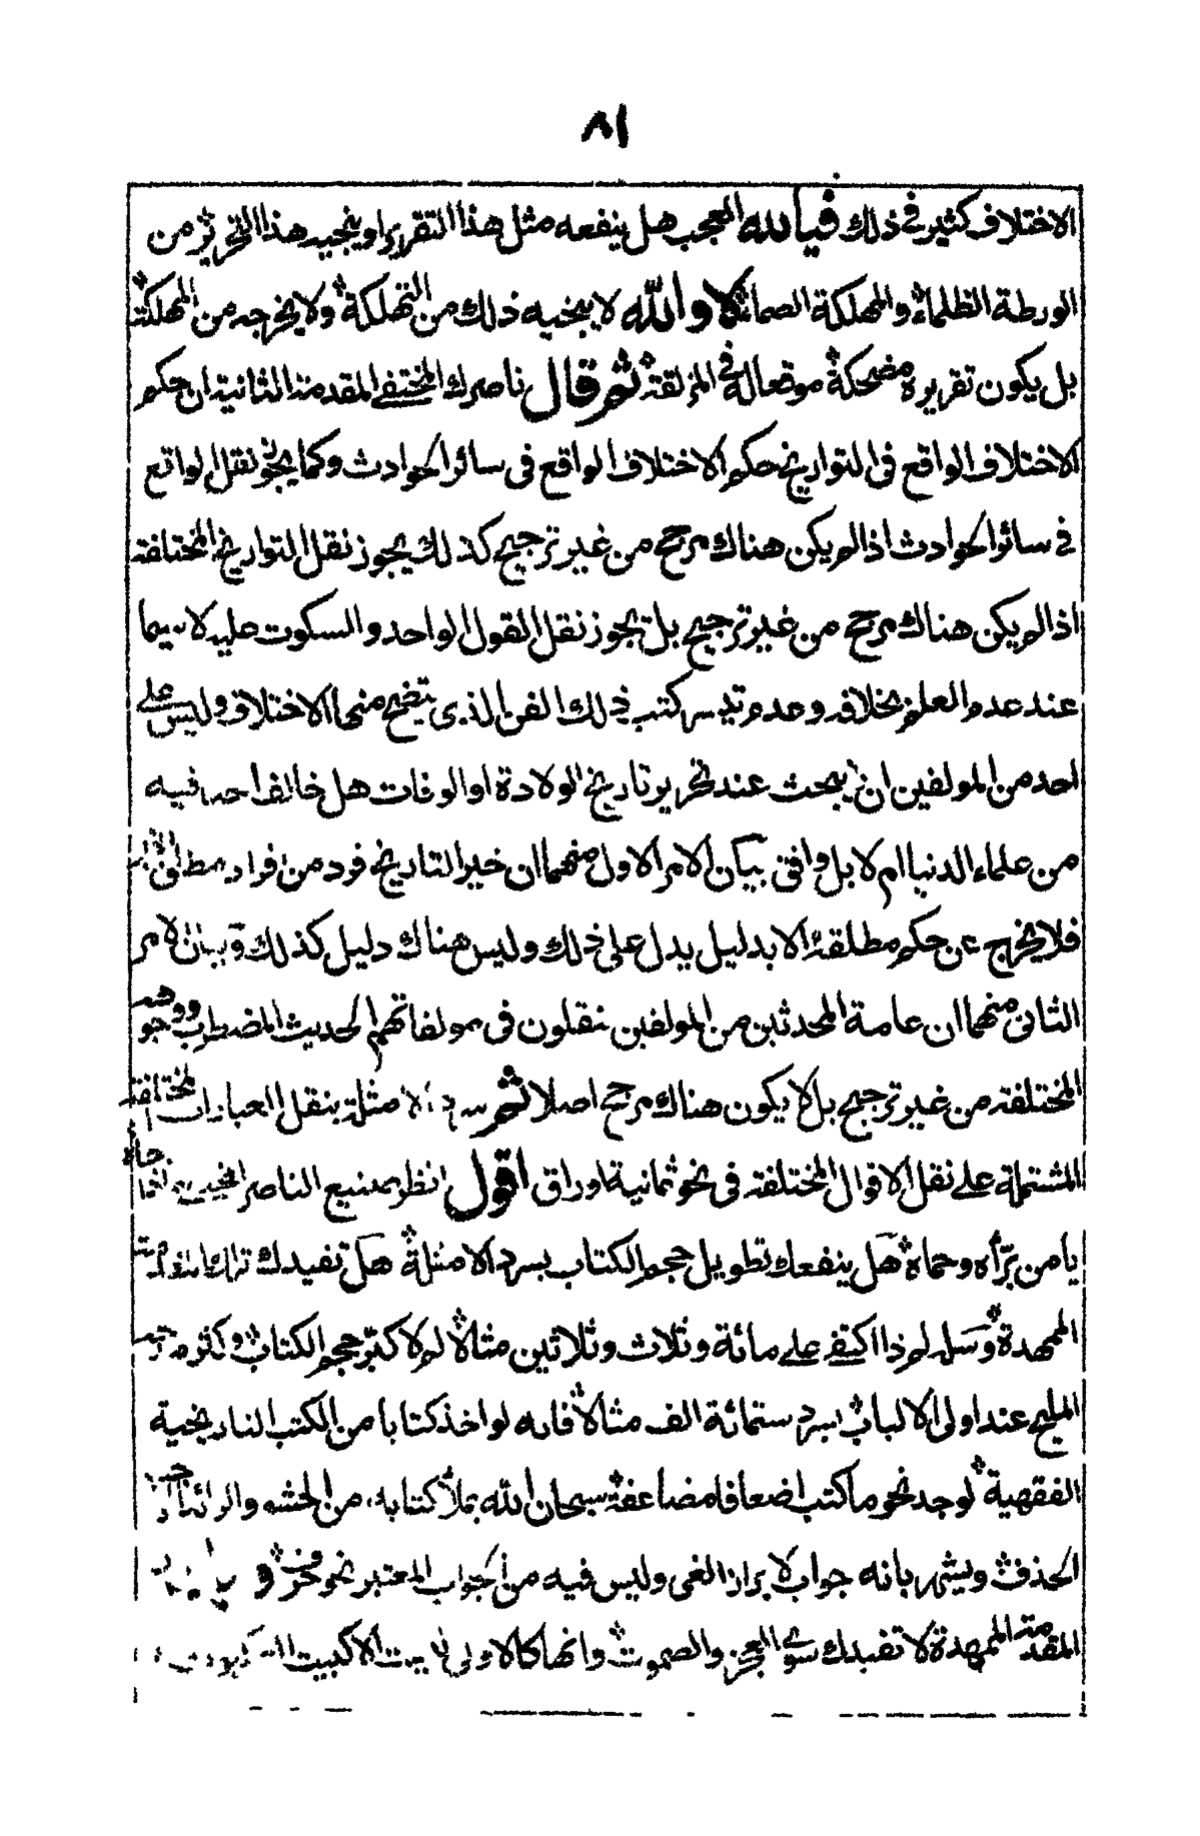 ٨١
الاختلاف كثير في ذلك فيا لله العجب هل ينفعه مثل هذا التقرير او ينجيه هذا التحرير من
الورطة الظلماء والمهلكة الصماء كلا والله لا ينجيه ذلك من التهلكة ولا يخرجه من المهلكة
بل يكون تقريره مضحكة موقعا له في المزلقة ثم قال ناصرك المختفي المقدمة الثانية ان حكم
الاختلاف الواقع في التواريخ حكم الاختلاف الواقع في سائر الحوادث وكما يجوز نقل الواقع
في سائر الحوادث اذا لم يكن هناك مرجح من غير ترجيح كذلك يجوز نقل التواريخ المختلفة
اذا لم يكن هناك مرجح من غير ترجيح بل يجوز نقل القول الواحد والسكوت عليه لا سيما
عند عدم العلم بخلافه وعدم تيسر كتب ذلك الفن الذي يتضح منها الاختلاف وليس على
احد من المولفين ان يبحث عند تحرير تاريخ الولادة او الوفات هل خالف احد فيه
من علماء الدنيا ام لا بل وافق بيان الامر الاول منهما ان خبر التاريخ فرد من افراد مطلق
فلا يخرج عن حكم مطلقه الا بدليل يدل على ذلك وليس هناك دليل كذلك وبيان الامر
الثاني منهما ان عامة المحدثين من المولفين ينقلون في مولفاتهم الحديث المضطرب ووجوهه
المختلفة من غير ترجيح بل لا يكون هناك مرجح اصلا ثم سرد الامثلة بنقل العبارات المختلفة
المشتملة على نقل الاقوال المختلفة في نحو ثمانية اوراق اقول انظر صنيع الناصر المختفي
يا من برّأه وحماه هل ينفعك تطويل حجم الكتاب بسرد الامثلة هل تفيدك تلك المقدمة
الممهدة وسله لم ذا اكتفى على مائة وثلاث وثلاثين مثالا لم لا كبّر حجم الكتاب وكثر
المليح عند اولي الالباب بسرد ستمائة الف مثالا فانه لو اخذ كتابا من الكتب التاريخية
الفقهية لوجد نحو ما كتب اضعافا مضاعفة سبحان الله يملأ كتابه من الحشو والزائد
الحذف ويشهر بانه جواب لابراز الغي وليس فيه من الجواب المعتبر نحو حرف و
المقدمة الممهدة لا تفيدك سوى العجز والصموت وانها كالاولى